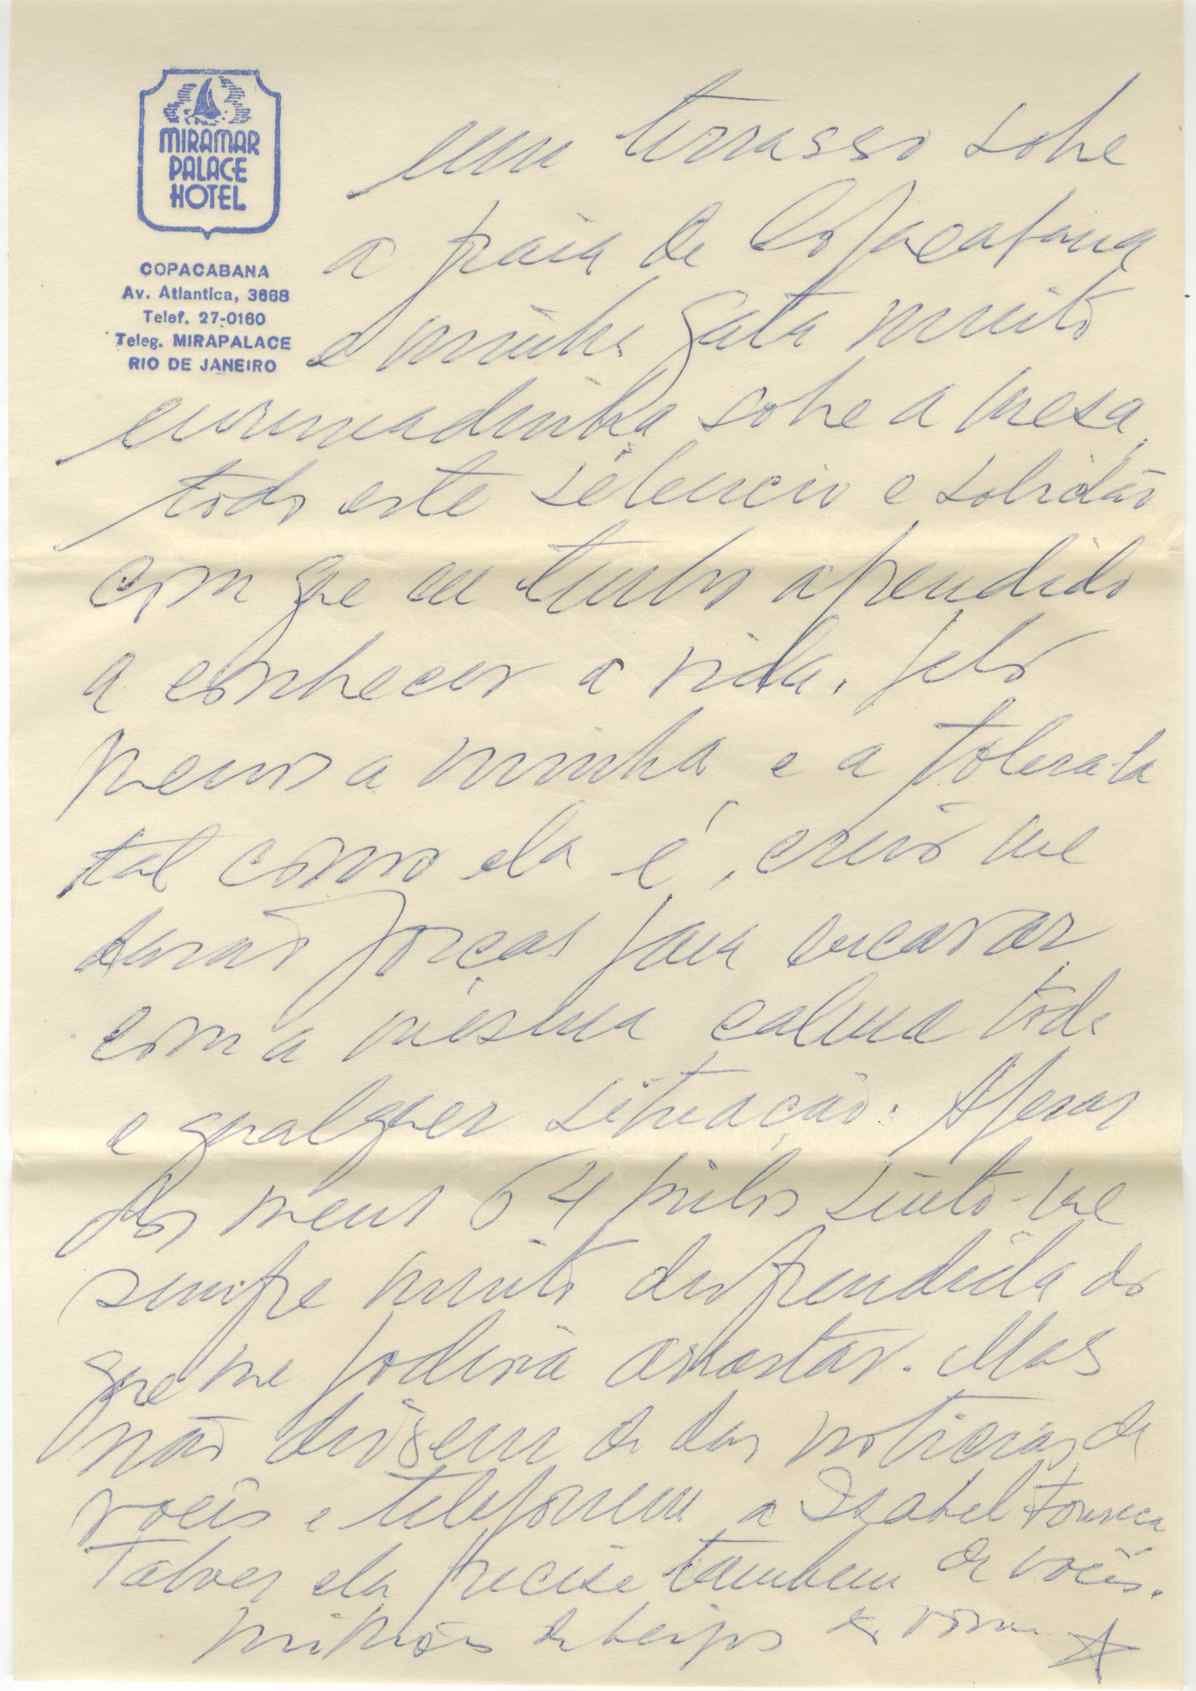 MIRAMAR
PALACE
HOTEL
COPACABANA
Av. Atlantica, 3668
Telef. 27-0160
Teleg. MIRAPALACE
RIO DE JANEIRO
num terrasso sobre
a praia de Copacabana
e minha gata muito
enrumadinha sobre a mesa,
todo este silencio e solidão
com que eu tenho aprendido
a conhecer a vida, pelo
menos a minha e a tolera-la
tal como ela é, creio me
darão forças para encarar
com a mesma calma toda
e qualquer situação. Apesar
dos meus 64 sinto-me
sempre muito desprendida do
que me poderia arrastar. Mas
não deixem de dar noticias de
vocês e telefonem a Isabel Fonseca
Talvez ela precise tambem de vocês.
Milhões de beijos da